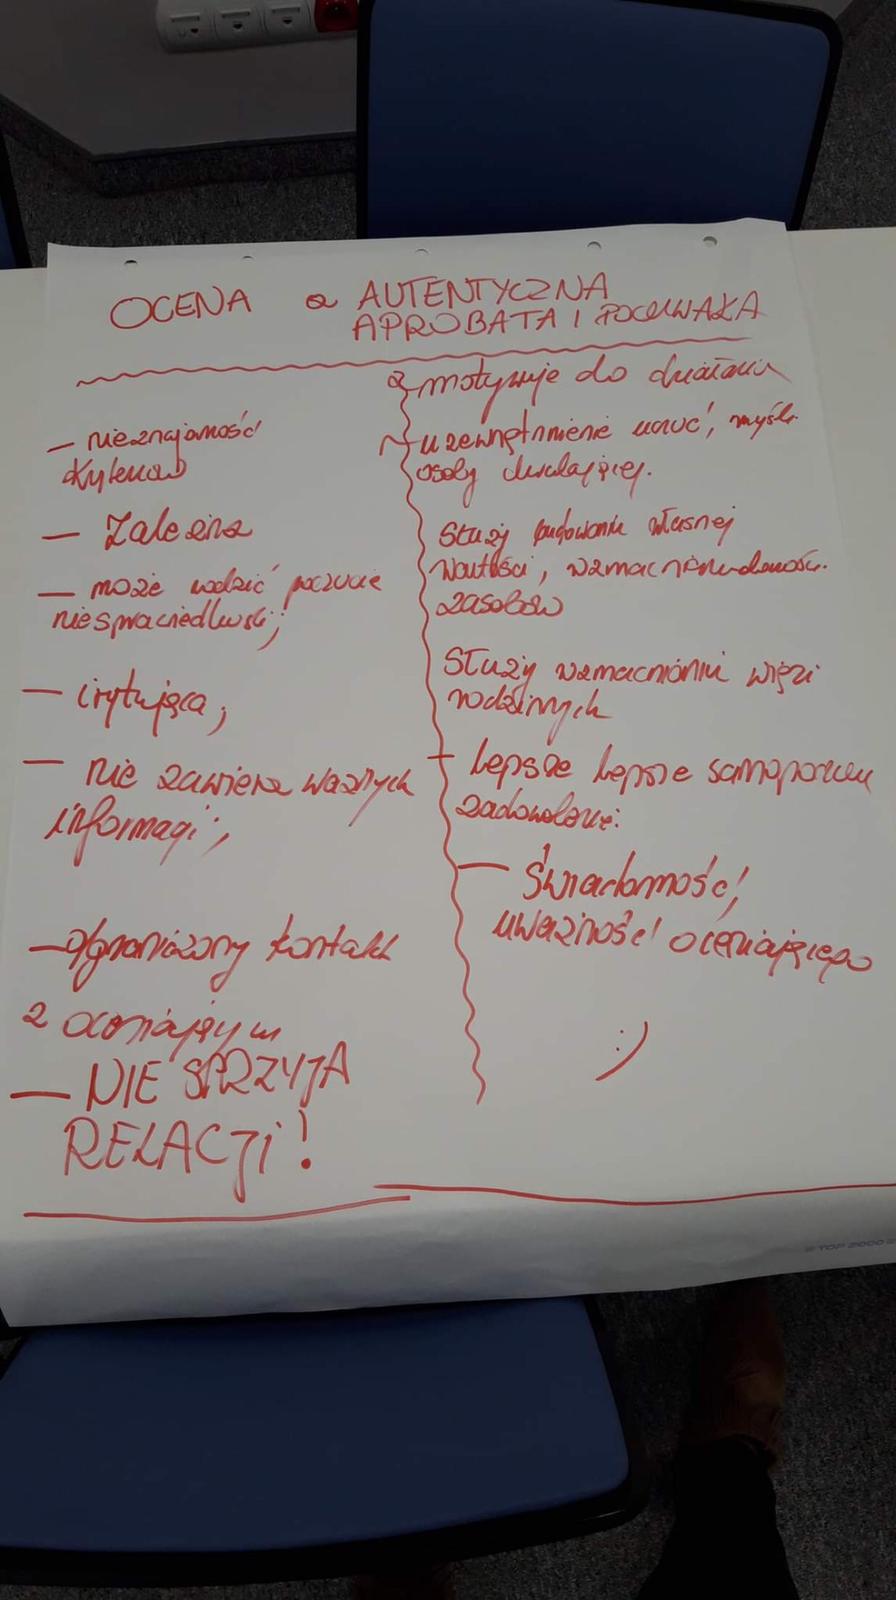 OCENA a AUTENTYCZNA
APROBATA I POCHWAŁA
— nieznajomość
kryteriów
— Zależna
— może rodzić poczucie
niesprawiedliwości;
— irytująca,
— nie zawiera ważnych
informacji,
— ograniczony kontakt
z oceniającym
— NIE SPRZYJA
RELACJI!
motywuje do działania
uzewnętrznienie uczuć, myśli
osoby chwalącej.
Służy budowaniu własnej
wartości,
zasobów
Służy wzmacnianiu więzi
rodzinnych
lepsze lepsze samopoczucie
— świadomość,
uważność oceniającego
:)
TOP 2000